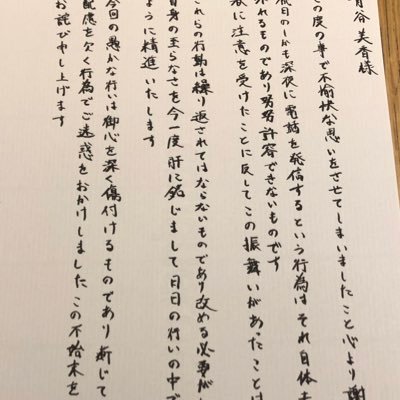 谷美香様
この度の事で不愉快な思いをさせてしまいましたこと心より謝
祝日のしかも深夜に電話を発信するという行為はそれ自体
外れるものであり努努許容できないものです
に注意を受けたことに反してこの振舞いがあったことは
これらの行動は繰り返されてはならないものであり改める必要が
自身の至らなさを今一度肝に銘じまして日日の行いの中で
ように精進いたします
今回の愚かな行いは御心を深く傷付けるものであり断じて
配慮を欠く行為でご迷惑をおかけしましたこの不始末を
お詫び申し上げます